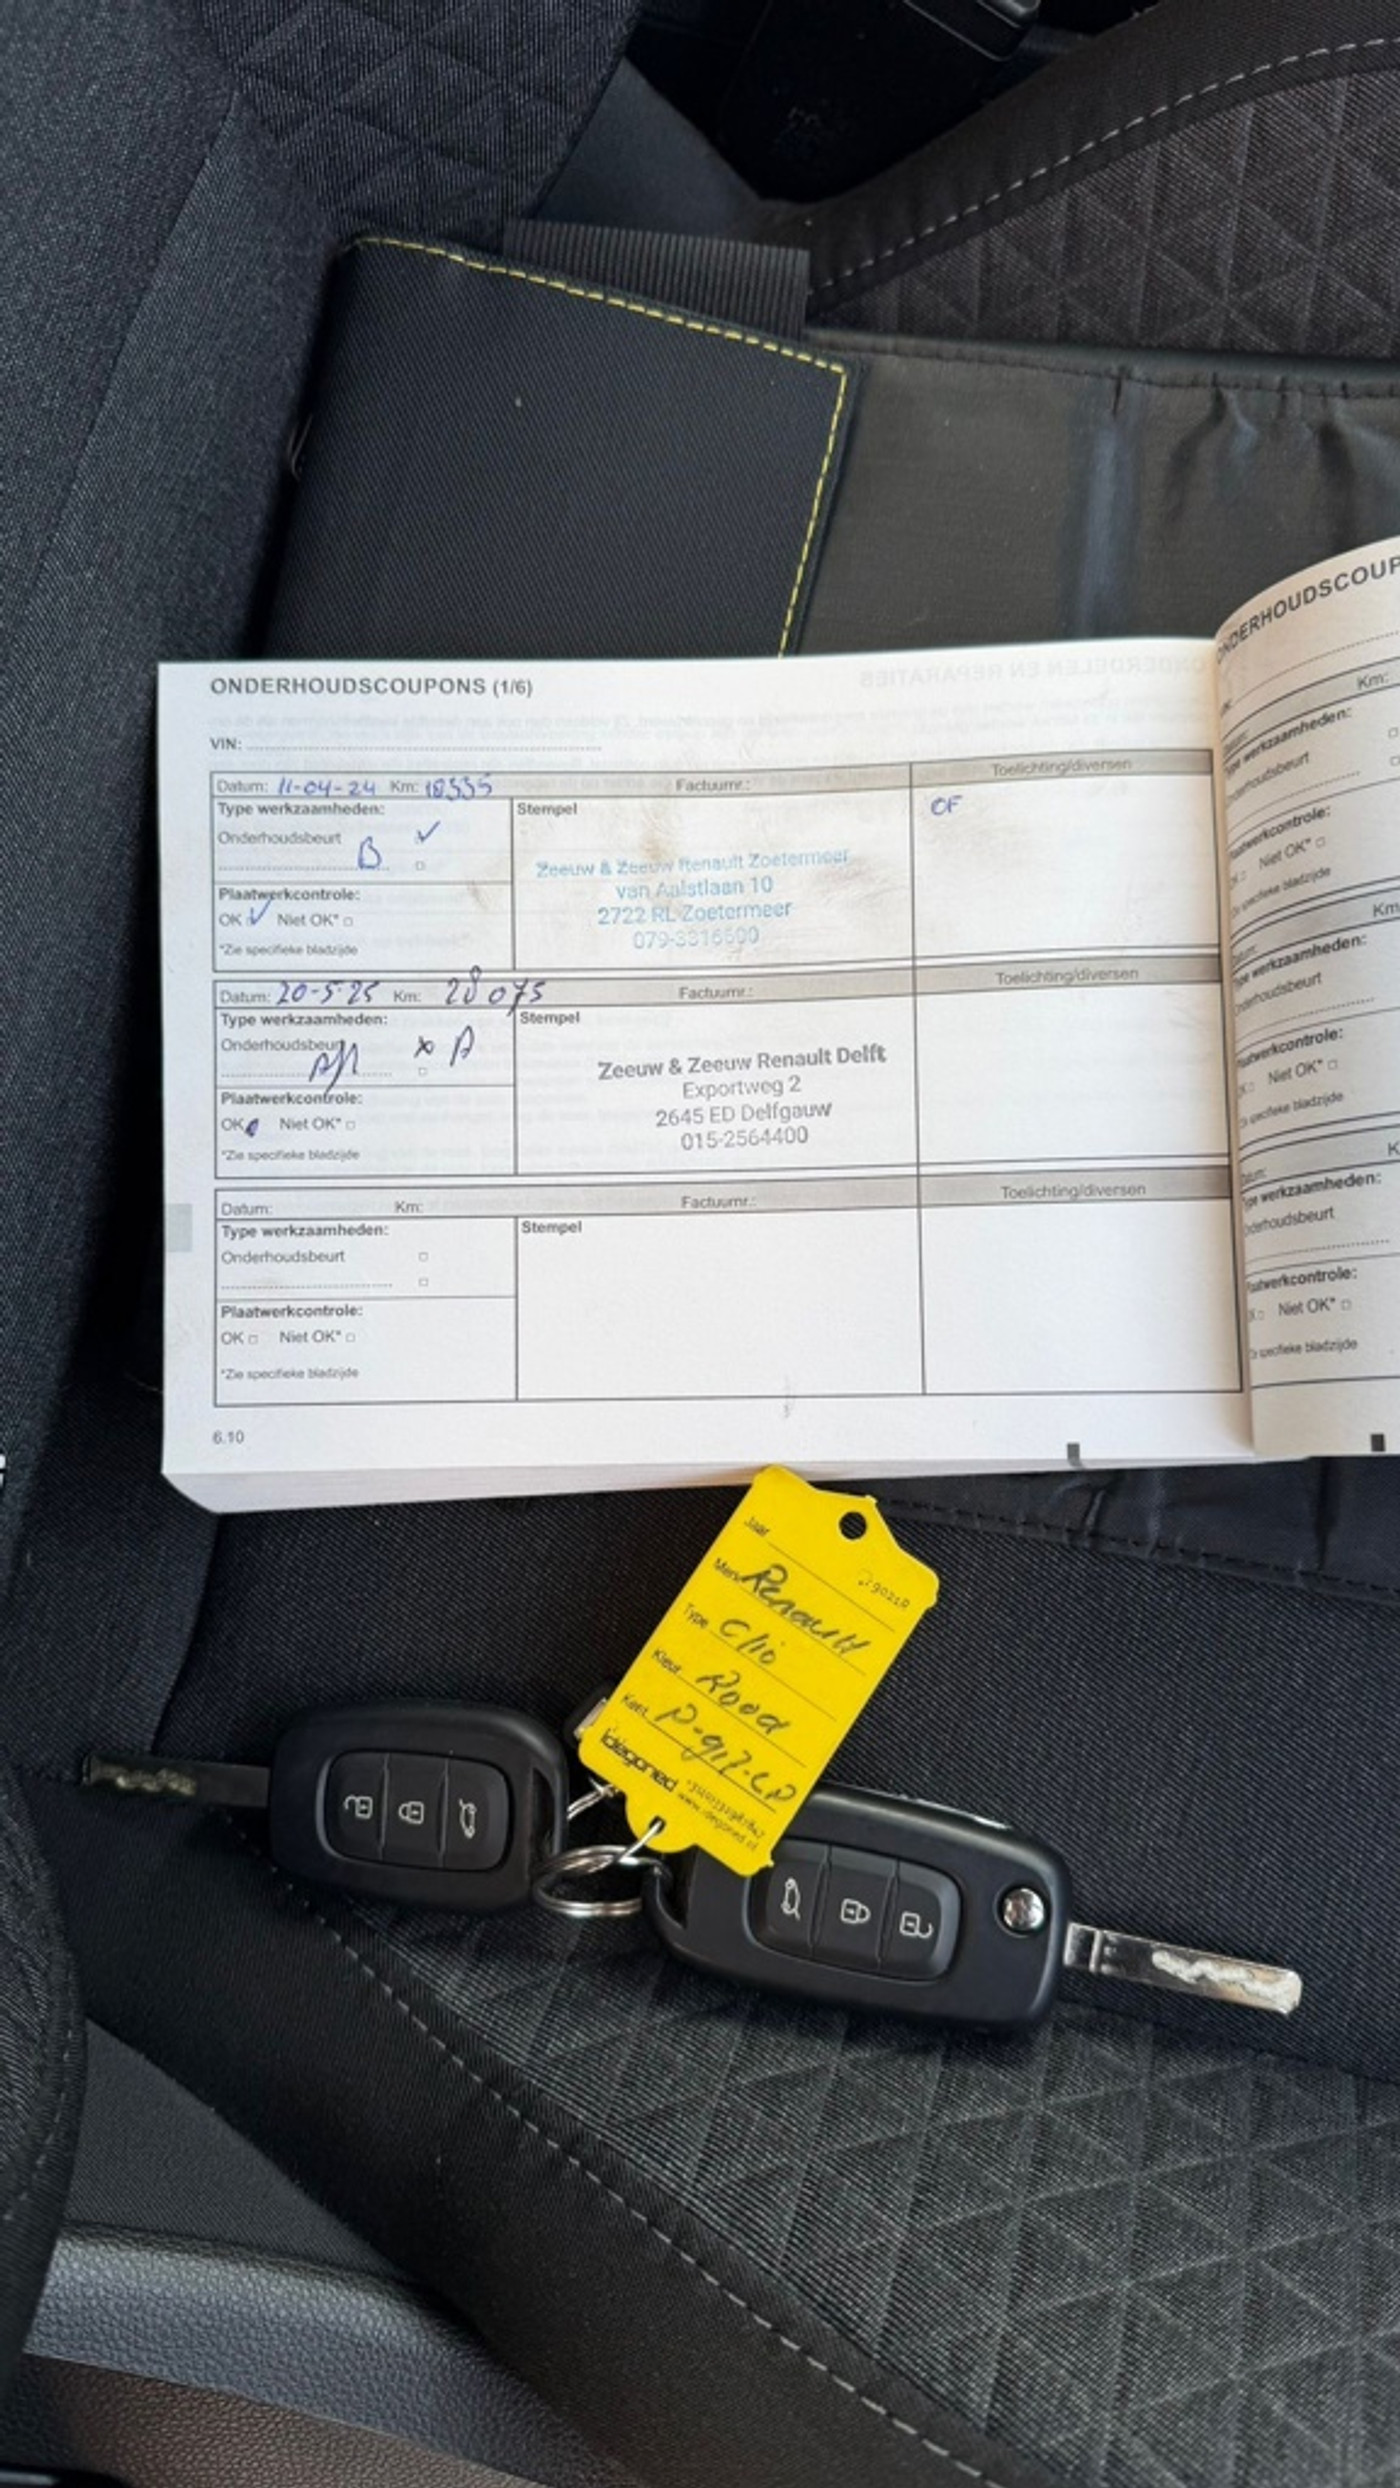 ONDERHOUDSCOUPONS (1/6)
VIN:
Datum: 11-04-24 Km: 18335 Factuurnr.: Toelichting/diversen
Type werkzaamheden: Stempel OF
Onderhoudsbeurt
B
Plaatwerkcontrole:
OK Niet OK*
*Zie specifieke bladzijde
Zeeuw & Zeeuw Renault Zoetermeer
van Aalstlaan 10
2722 RL Zoetermeer
079-3316600
Datum: 20-5-25 Km: 28075 Factuurnr.: Toelichting/diversen
Type werkzaamheden: Stempel
Onderhoudsbeurt A
Plaatwerkcontrole:
OK Niet OK*
*Zie specifieke bladzijde
Zeeuw & Zeeuw Renault Delft
Exportweg 2
2645 ED Delfgauw
015-2564400
Datum: Km: Factuurnr.: Toelichting/diversen
Type werkzaamheden: Stempel
Onderhoudsbeurt
Plaatwerkcontrole:
OK Niet OK*
*Zie specifieke bladzijde
6.10
Km:
werkzaamheden:
Niet OK*
specifieke bladzijde
Km
werkzaamheden:
Niet OK*
specifieke bladzijde
werkzaamheden:
Niet OK*
specifieke bladzijde
Jaar
Merk Renault
Type Clio
Kleur Rood
Kent.
idegoned
www.idegoned.nl